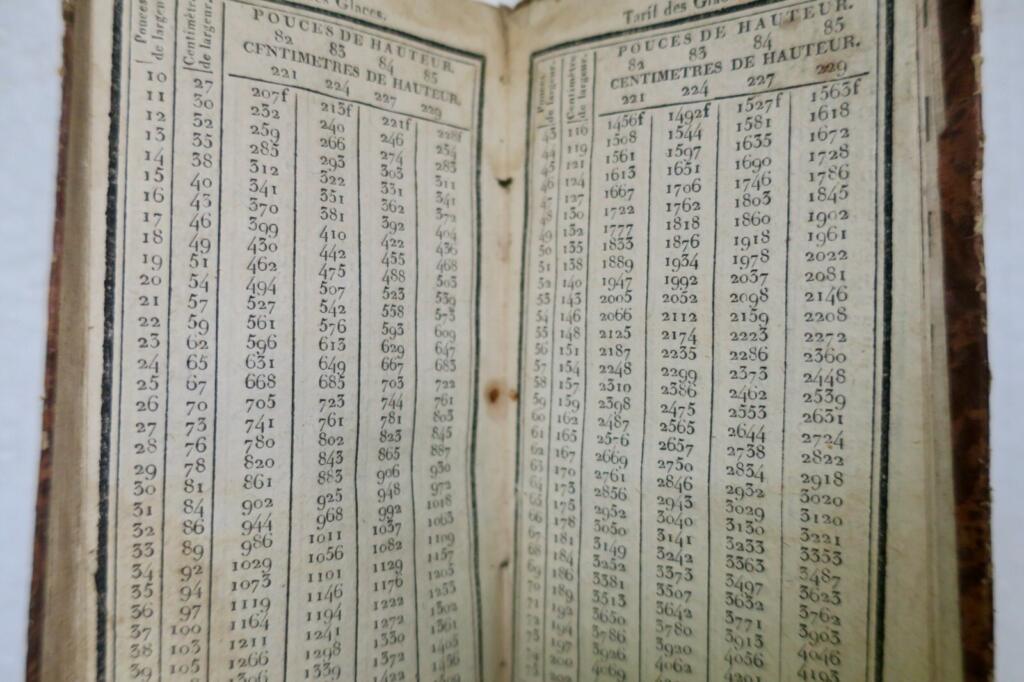 des Glaces.
Pouces de largeur.
Centimètr. de largeur.
POUCES DE HAUTEUR.
82 83 84 85
CENTIMETRES DE HAUTEUR.
221 224 227 229
10 27 207f 213f 221f 228f
11 30 232 240 246 254
12 32 259 266 274 283
13 35 285 293 303 311
14 38 312 322 331 341
15 40 341 351 362 372
16 43 370 381 392 404
17 46 399 410 422 436
18 49 430 442 455 468
19 51 462 475 488 503
20 54 494 507 523 539
21 57 527 542 558 573
22 59 561 576 593 609
23 62 596 613 629 647
24 65 631 649 667 683
25 67 668 685 703 722
26 70 705 723 744 761
27 73 741 761 781 803
28 76 780 802 823 845
29 78 820 843 865 887
30 81 861 883 906 930
31 84 902 925 948 972
32 86 944 968 992 1018
33 89 986 1011 1037 1063
34 92 1029 1056 1082 1109
35 94 1073 1101 1129 1157
36 97 1119 1146 1176 1205
37 100 1164 1194 1222 1253
38 103 1211 1241 1272 1302
39 105 1266 1298 1330 1361
1306 1339 1372 1403
Tarif des
Pouces de largeur.
Centimètr. de largeur.
POUCES DE HAUTEUR.
82 83 84 85
CENTIMETRES DE HAUTEUR.
221 224 227 229
43 116 1456f 1492f 1527f 1563f
44 119 1508 1544 1581 1618
45 121 1561 1597 1635 1672
46 124 1613 1651 1690 1728
47 127 1667 1706 1746 1786
48 130 1722 1762 1803 1845
49 132 1777 1818 1860 1902
50 135 1833 1876 1918 1961
51 138 1889 1934 1978 2022
52 140 1947 1992 2037 2081
53 143 2005 2052 2098 2146
54 146 2066 2112 2159 2208
55 148 2125 2174 2223 2272
56 151 2187 2235 2286 2360
57 154 2248 2299 2373 2448
58 157 2310 2386 2462 2539
59 159 2398 2475 2553 2631
60 162 2487 2565 2644 2724
61 165 2576 2657 2738 2822
62 167 2669 2750 2834 2918
63 170 2761 2846 2932 3020
64 173 2856 2943 3029 3120
65 175 2952 3040 3130 3221
66 178 3050 3141 3233 3353
67 181 3149 3242 3363 3487
68 184 3252 3373 3497 3623
69 186 3381 3507 3632 3762
70 189 3513 3642 3771 3903
71 192 3650 3780 3913 4046
72 194 3786 3920 4056 4193
73 197 3926 4062 4201
200 4069